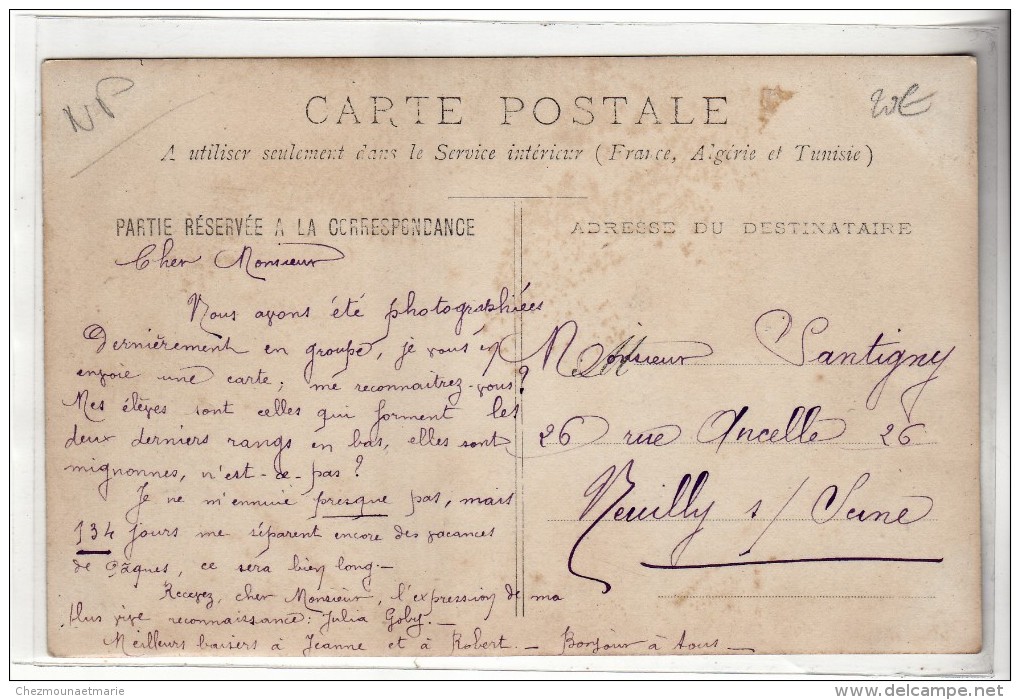 NP
20€
CARTE POSTALE
A utiliser seulement dans le Service intérieur (France, Algérie et Tunisie)
PARTIE RÉSERVÉE A LA CORRESPONDANCE
Cher Monsieur
Nous avons été photographiées
Dernièrement en groupe, je vous en
envoie une carte; me reconnaitrez-vous?
Mes élèves sont celles qui forment les
deux derniers rangs en bas, elles sont
mignonnes, n'est-ce-pas?
Je ne m'ennuie presque pas, mais
134 jours me séparent encore des vacances
de Pâques, ce sera bien long.-
Recevez, cher Monsieur, l'expression de ma
plus vive reconnaissance: Julia Goby.-
Meilleurs baisers à Jeanne et à Robert.- Bonjour à tous.-
ADRESSE DU DESTINATAIRE
Monsieur Santigny
26 rue Ancelle 26
Neuilly s/ Seine
Chezmounaetmarie
www.delcampe.net